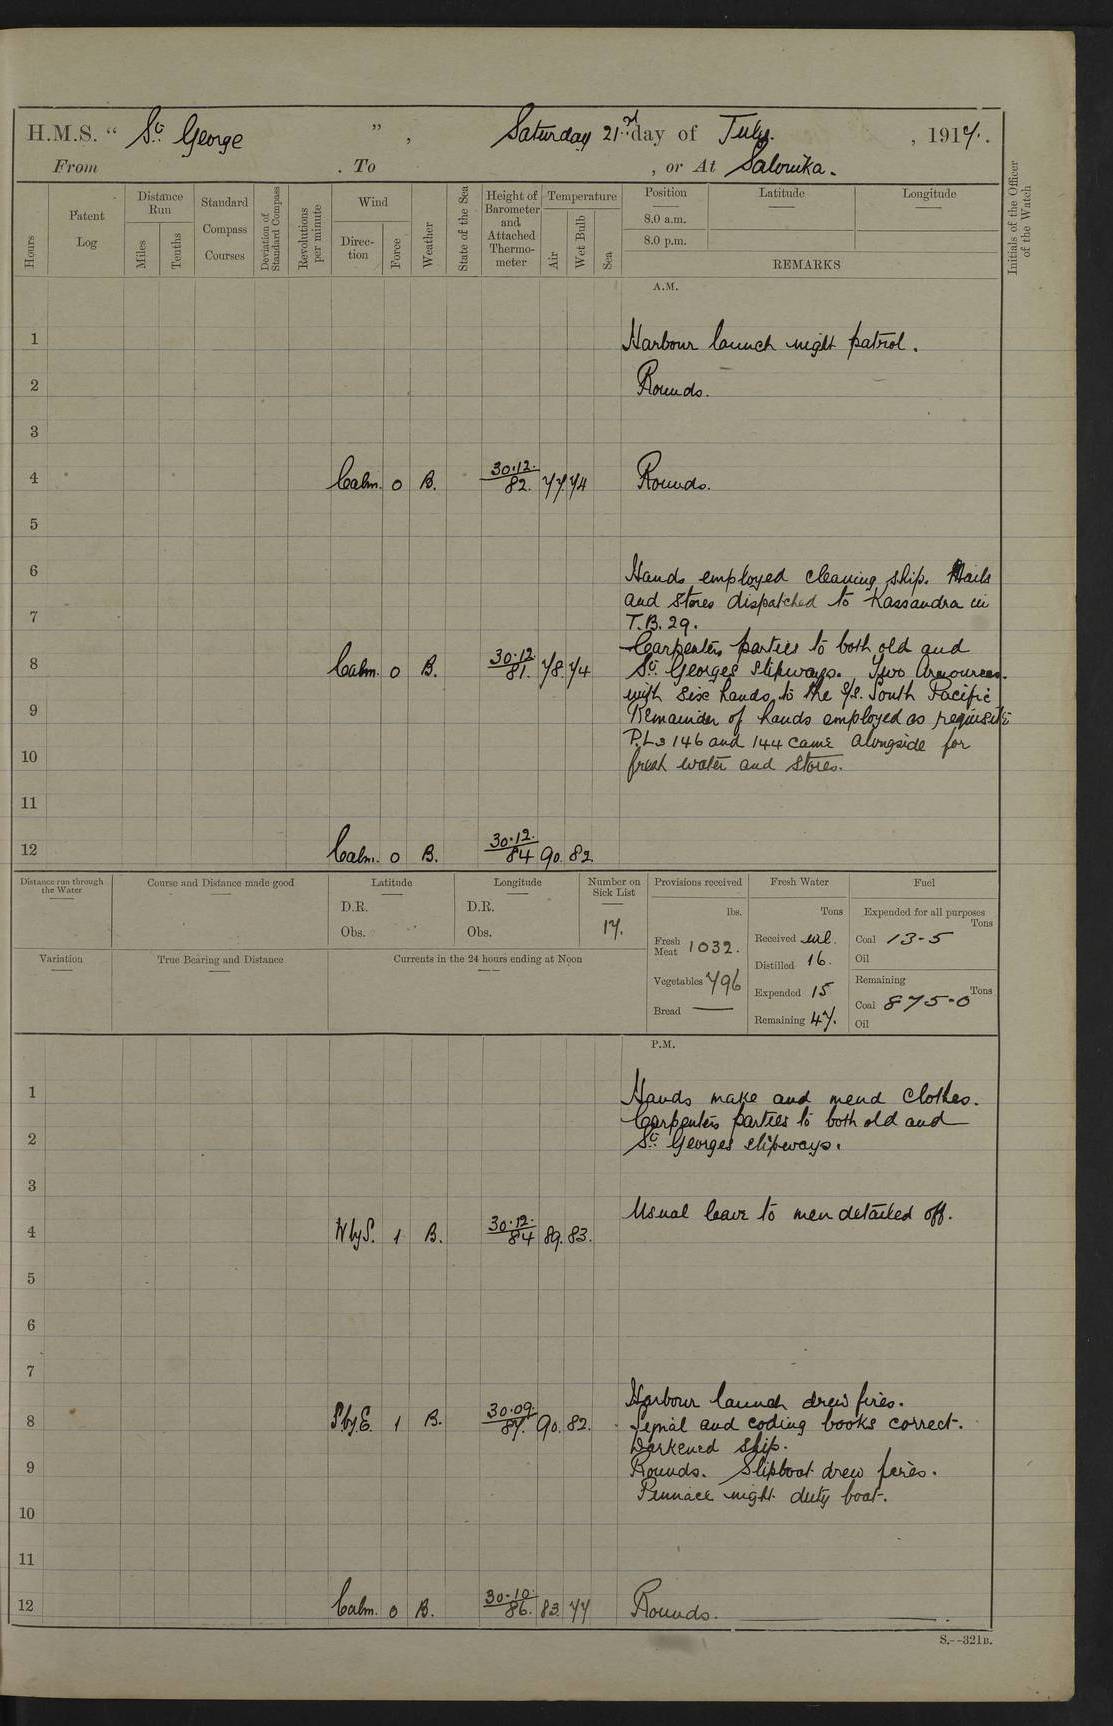 H.M.S. “ St George ”, Saturday 21st day of July. , 1917.
From . To , or At Salonika.
Hours
Patent Log
Distance Run
Miles
Tenths
Standard Compass Courses
Deviation of Standard Compass
Revolutions per minute
Wind
Direc-tion
Force
Weather
State of the Sea
Height of Barometer and Attached Thermo-meter
Temperature
Air
Wet Bulb
Sea
Position
Latitude
Longitude
8.0 a.m.
8.0 p.m.
REMARKS
Initials of the Officer of the Watch
A.M.
1 Harbour launch night patrol.
2 Rounds.
3
4 Calm. 0 B. 30.12. 82. 77. 74 Rounds.
5
6 Hands employed cleaning ship. Mails
and stores dispatched to Kassandra in
7 T.B. 29.
Carpenters parties to both old and
8 Calm. 0 B. 30.12. 81. 78. 74 St. Georges slipways. Two Armourers.
with six hands to the S/S. South Pacific
9 Remainder of hands employed as requisite
P.Ls 146 and 144 came alongside for
10 fresh water and stores.
11
12 Calm. 0 B. 30.12. 84 90. 82.
Distance run through the Water
Course and Distance made good
Latitude
D.R.
Obs.
Longitude
D.R.
Obs.
Number on Sick List
17.
Provisions received
lbs.
Fresh Meat 1032.
Vegetables 796
Bread —
Fresh Water
Tons
Received nil.
Distilled 16.
Expended 15
Remaining 47.
Fuel
Expended for all purposes
Tons
Coal 13-5
Oil
Remaining
Tons
Coal 875-0
Oil
Variation
True Bearing and Distance
Currents in the 24 hours ending at Noon
P.M.
1 Hands make and mend clothes.
Carpenters parties to both old and
2 St. Georges slipways.
3
Usual leave to men detailed off.
4 W by S. 1 B. 30.12. 84 89. 83.
5
6
7
Harbour launch drew fires.
8 S by E. 1 B. 30.09. 87. 90. 82. Signal and coding books correct.
Darkened ship.
9 Rounds. Slipboat drew fires.
Pinnace night duty boat.
10
11
12 Calm. 0 B. 30.10. 86. 83. 77 Rounds.
S.--321B.